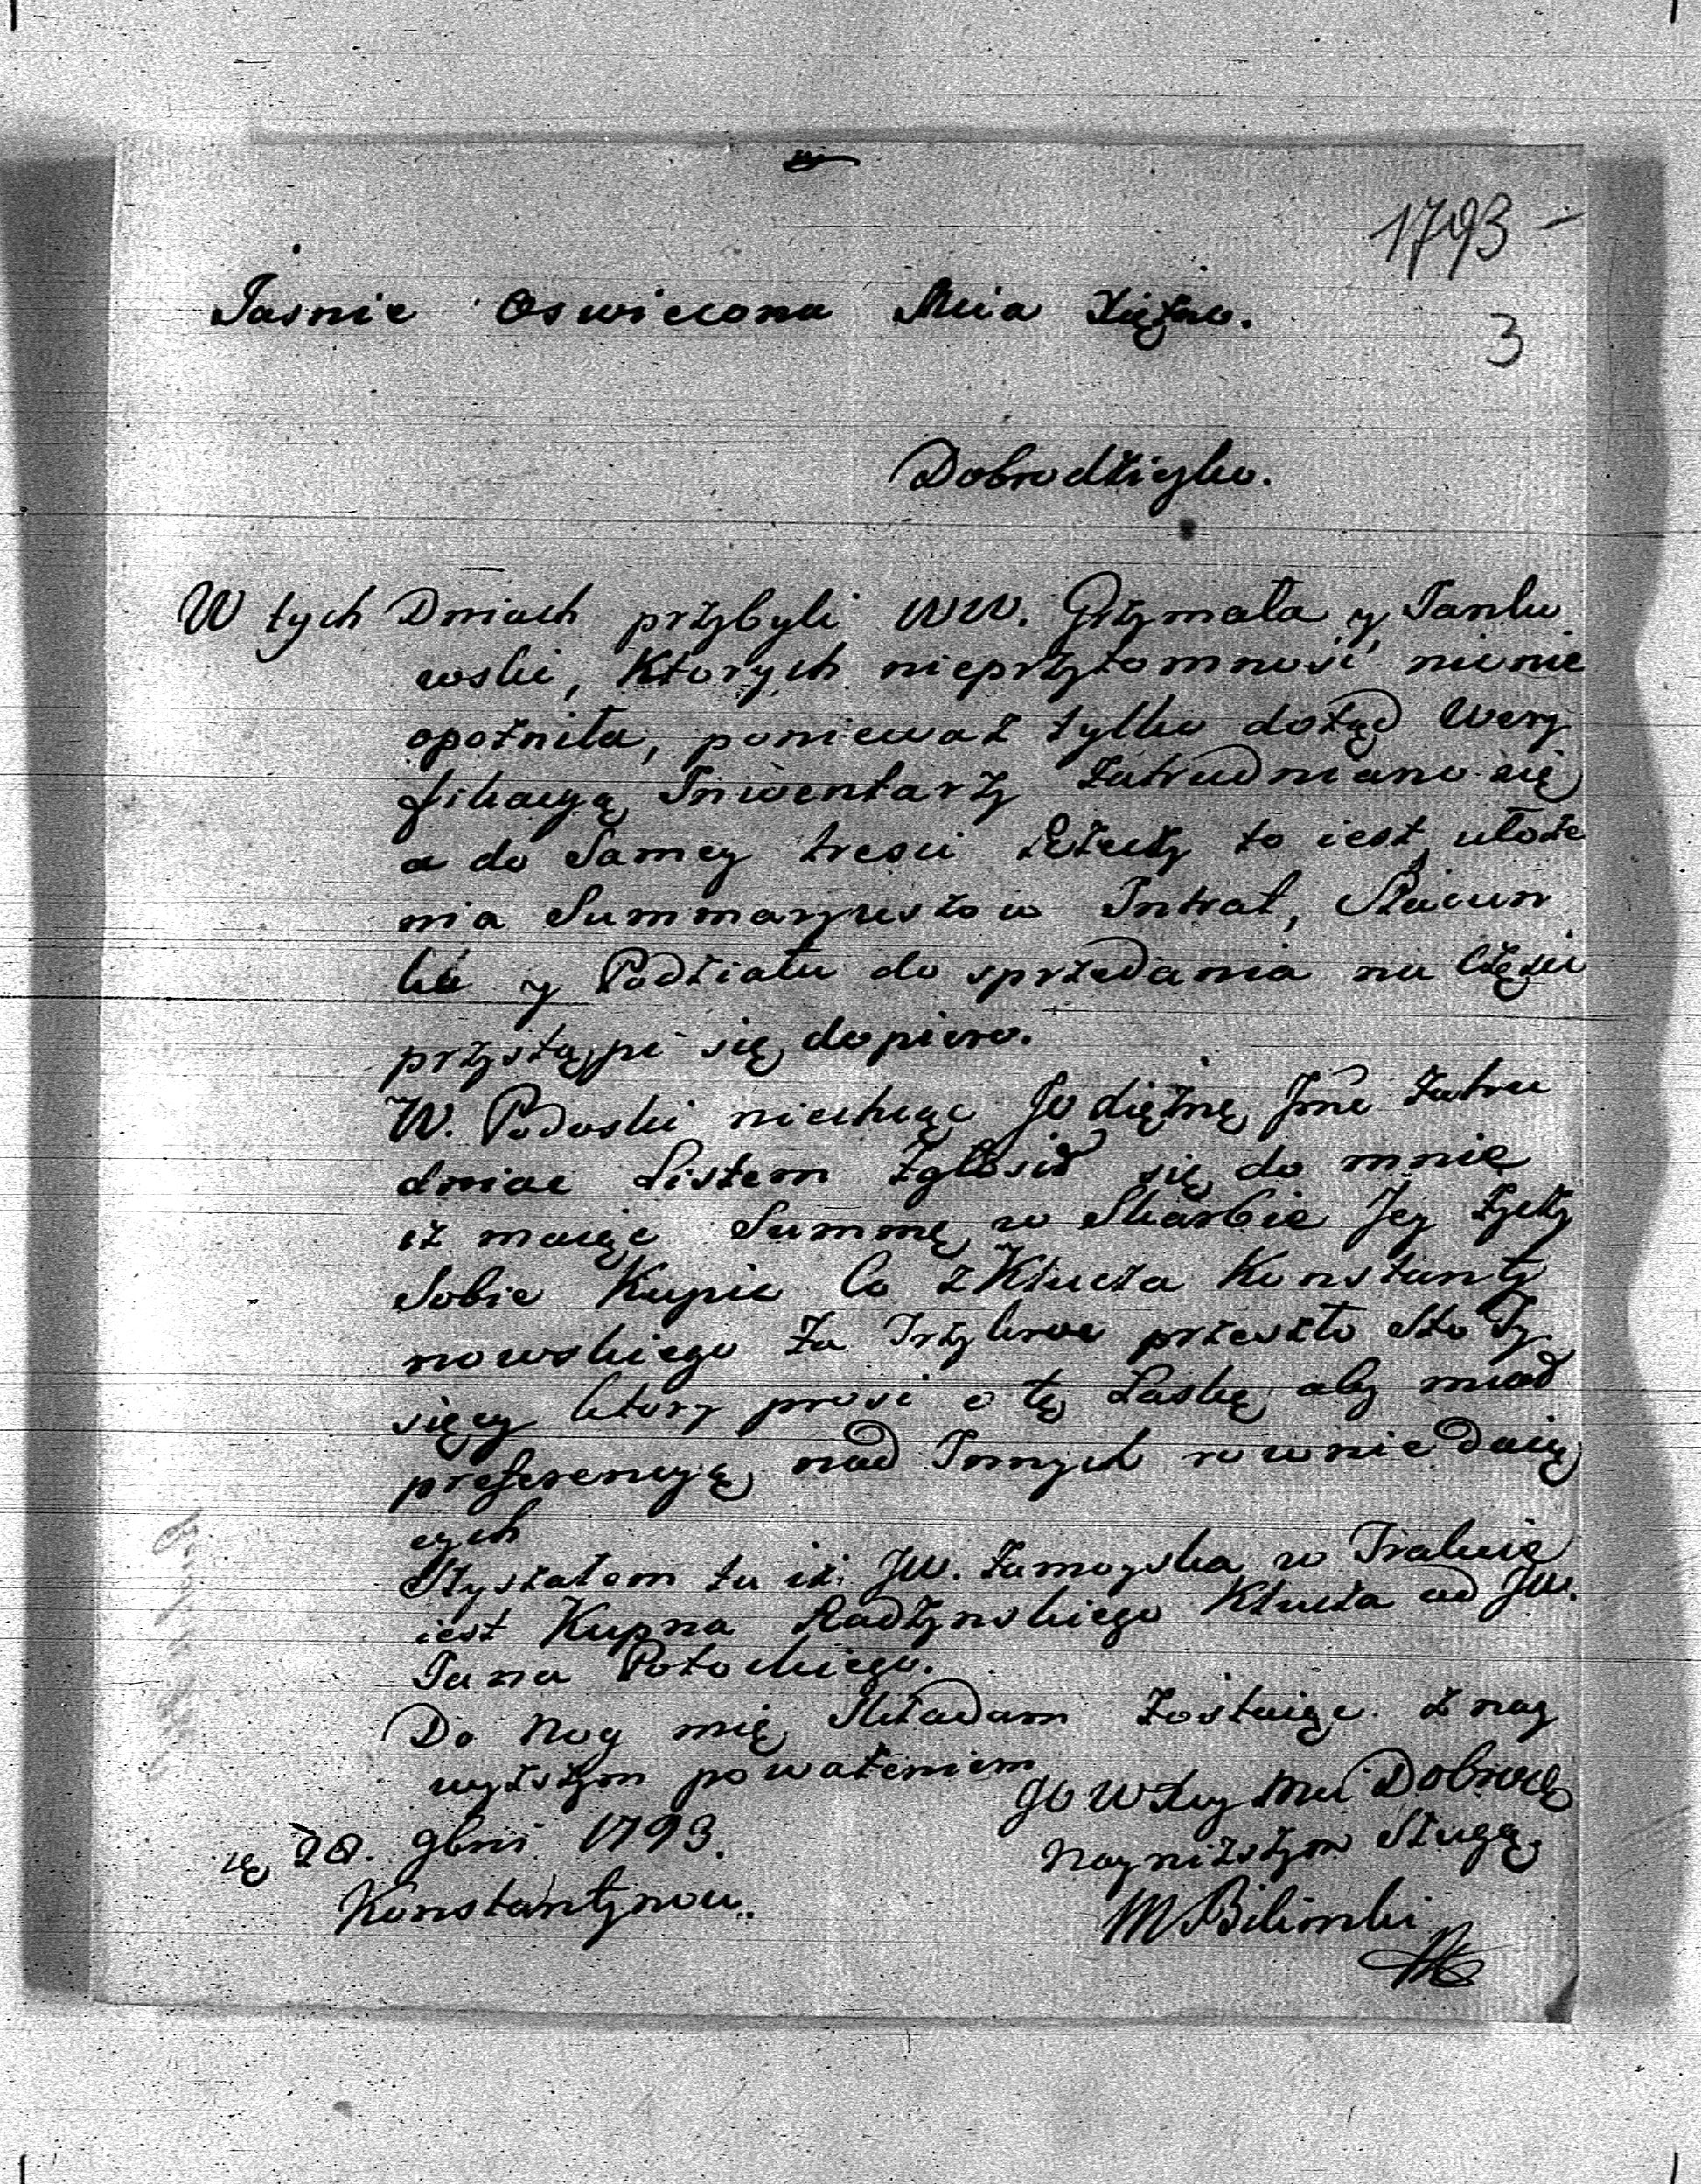 1793 -
3
Jasnie Oswiecona Mcia Xięzno.
Dobrodzieyko.
W tych Dniach przybyli WW. Grzymała y Janko
wski, Ktorych nieprzytomnosć nic nie
opozniła, poniewaz tylko dotąd Wery
fikacyą Inwentarzy zatrudniano się
a do Samey tresci Rzeczy to iest ułoze
nia Summaryuszow Intrat, Szacun
ku y Podziału do sprzedania na Częsci
przystąpi się dopiero.
W. Podoski niechcąc JO Xiężnę Jmć zatru
dniac Listem Zgłosił się do mnie
iz maiąc Summę w Skarbie Jey Zyczy
Sobie Kupic Co z Klucza Konstanty
nowskiego za Trzykroc przeszło Sto Ty
sięcy ktory prosi o tę Łaskę aby miał
preferencyą nad Innych rownie daią
cych
Słyszałem tu iż JW. Zamoyska w Trakcie
iest Kupna Radzynskiego Klucza od JW.
Jana Potockiego.
Do Nog mię Składam zostaiąc z nay
wyzszym powazeniem
JO WXcy Mci Dobrodz
Nayniższym Sługą
28. 9bris 1793.
Konstantynow.
M Bilinski